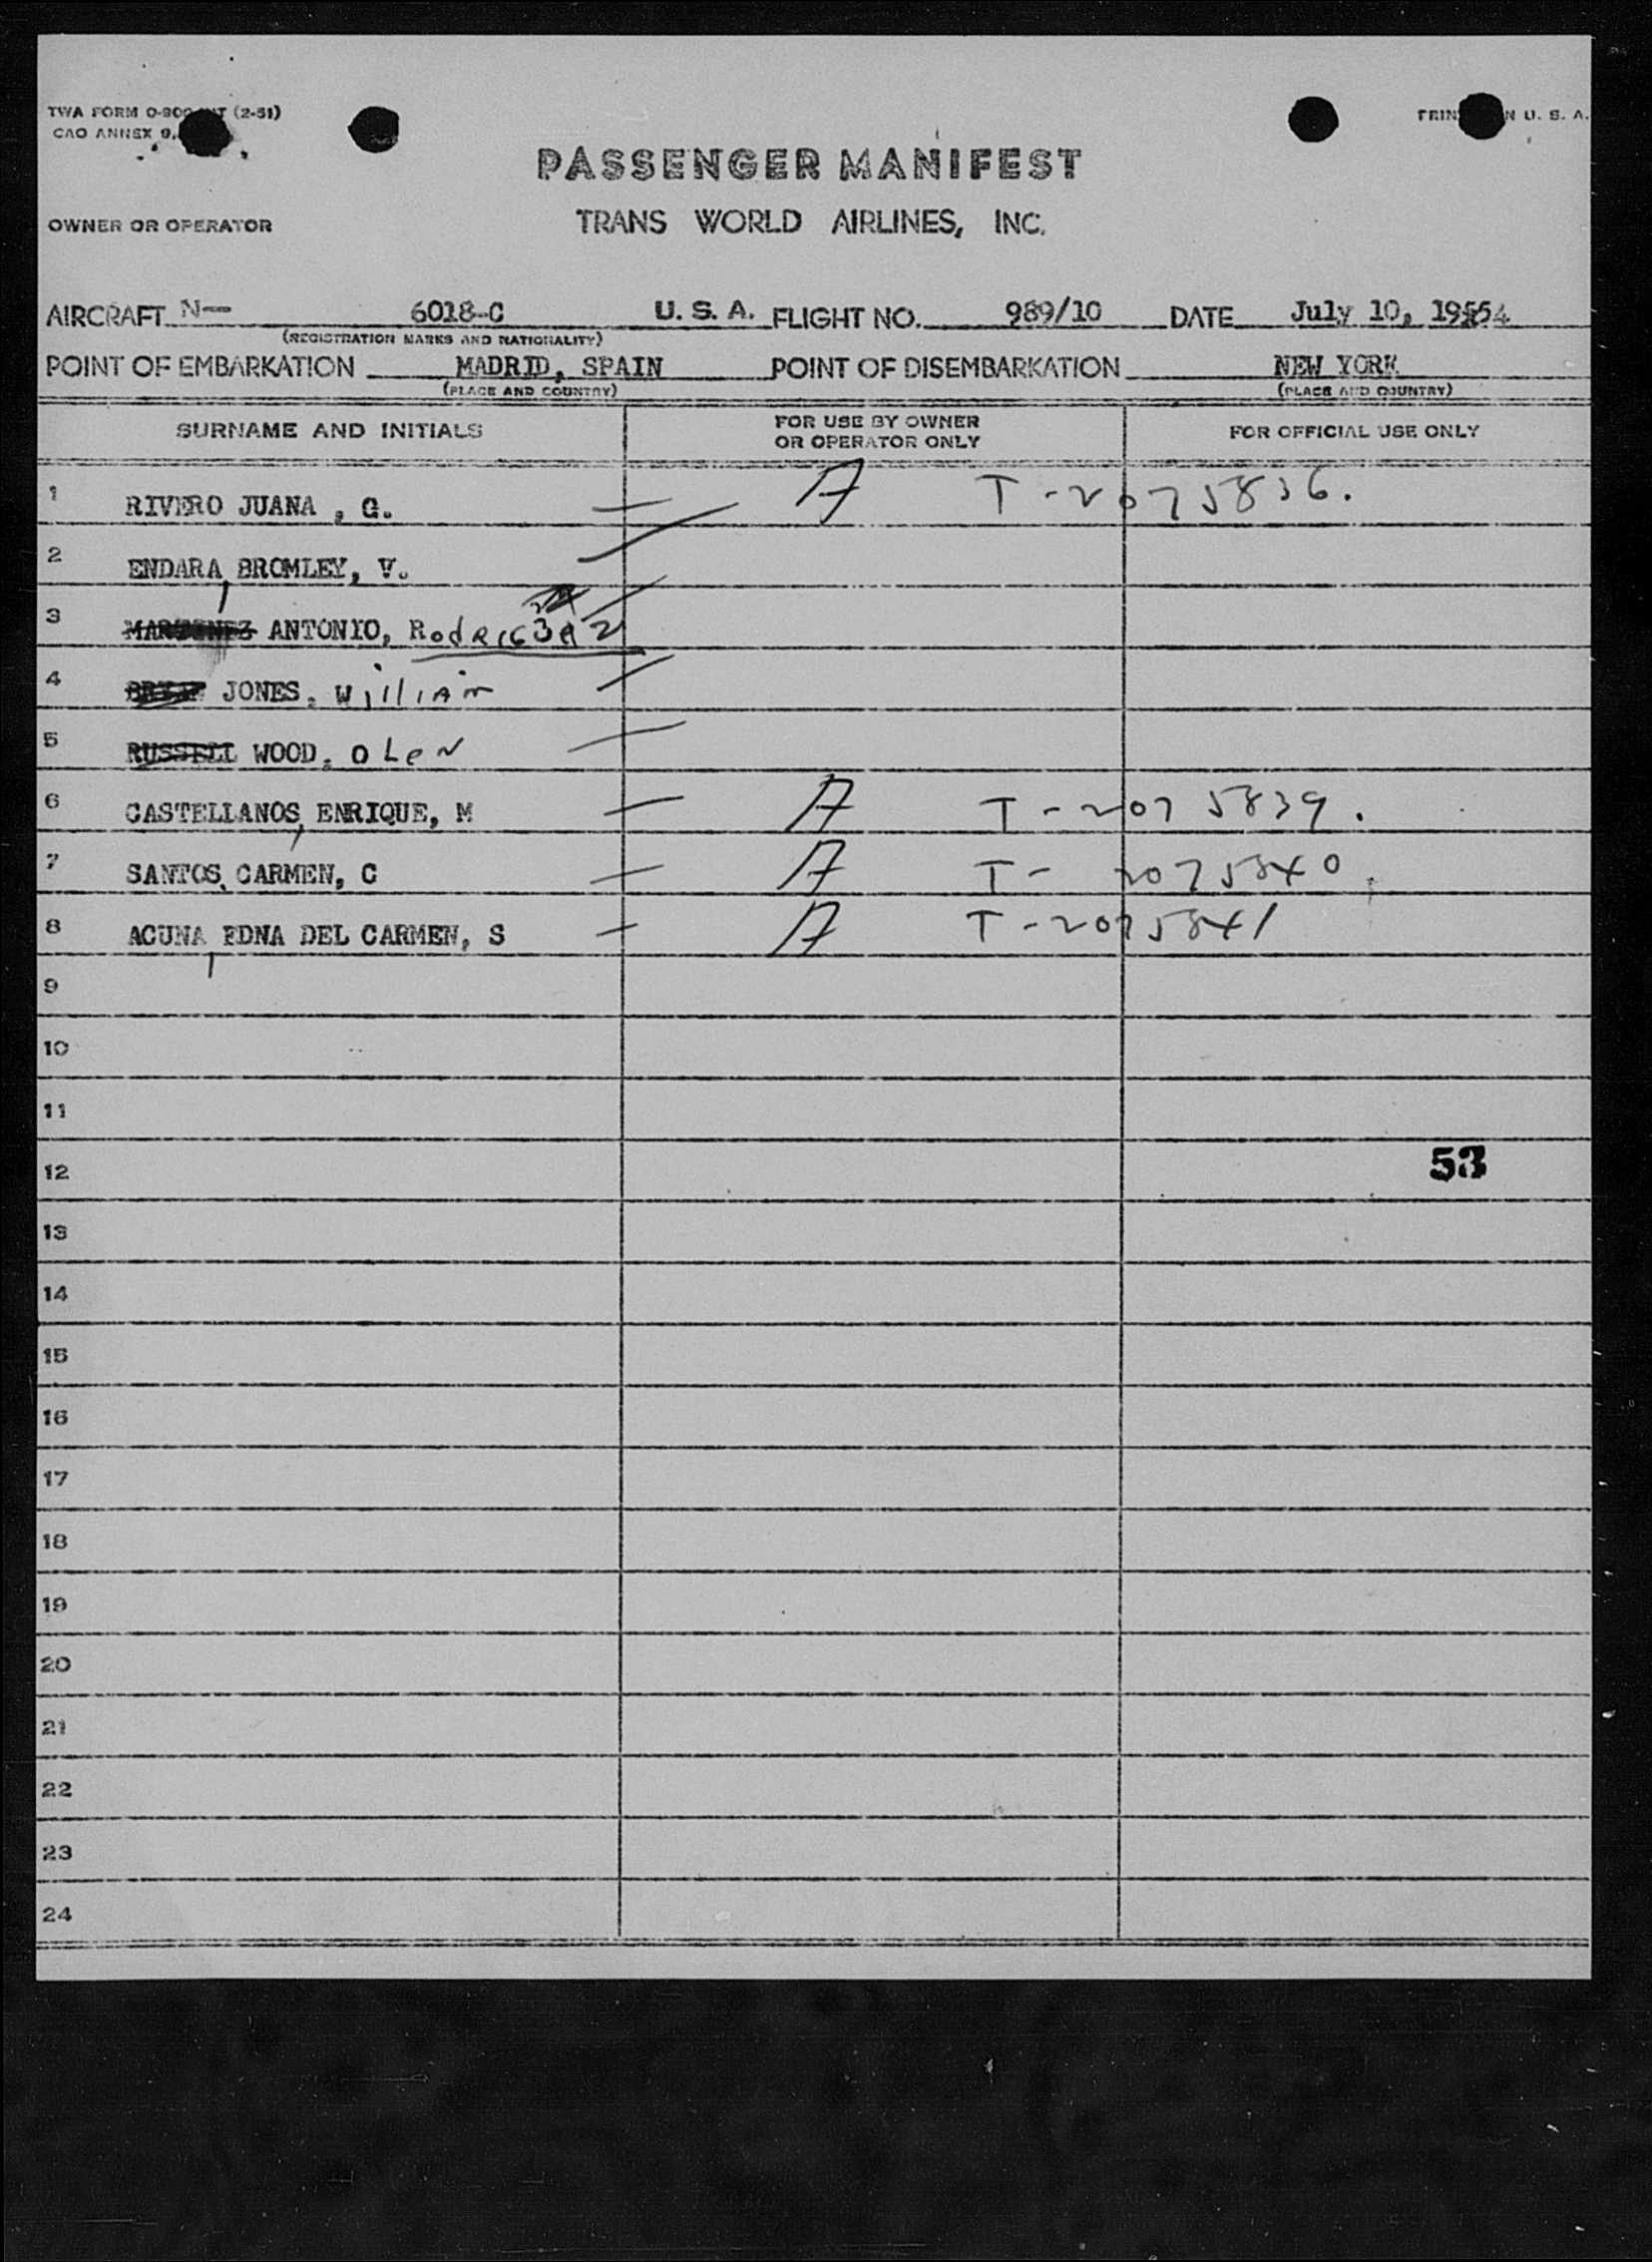 TWA FORM O-900 INT (2-51)
CAO ANNEX 9,
PRIN N U. S. A.
PASSENGER MANIFEST
OWNER OR OPERATOR
TRANS WORLD AIRLINES, INC.
AIRCRAFT N— 6018-C U. S. A. FLIGHT NO. 989/10 DATE July 10, 1954
(REGISTRATION MARKS AND NATIONALITY)
POINT OF EMBARKATION MADRID, SPAIN POINT OF DISEMBARKATION NEW YORK
(PLACE AND COUNTRY) (PLACE AND COUNTRY)
SURNAME AND INITIALS
FOR USE BY OWNER
OR OPERATOR ONLY
FOR OFFICIAL USE ONLY
1 RIVERO JUANA , G. — A T-2075836.
2 ENDARA, BROMLEY, V.
3 MARTINEZ ANTONIO,
4 JONES, William
5 RUSSELL WOOD, OLeN
6 CASTELLANOS, ENRIQUE, M — A T-2075839.
7 SANTOS, CARMEN, C — A T-2075840.
8 ACUNA, EDNA DEL CARMEN, S — A T-2075841
9
10
11
12 53
13
14
15
16
17
18
19
20
21
22
23
24